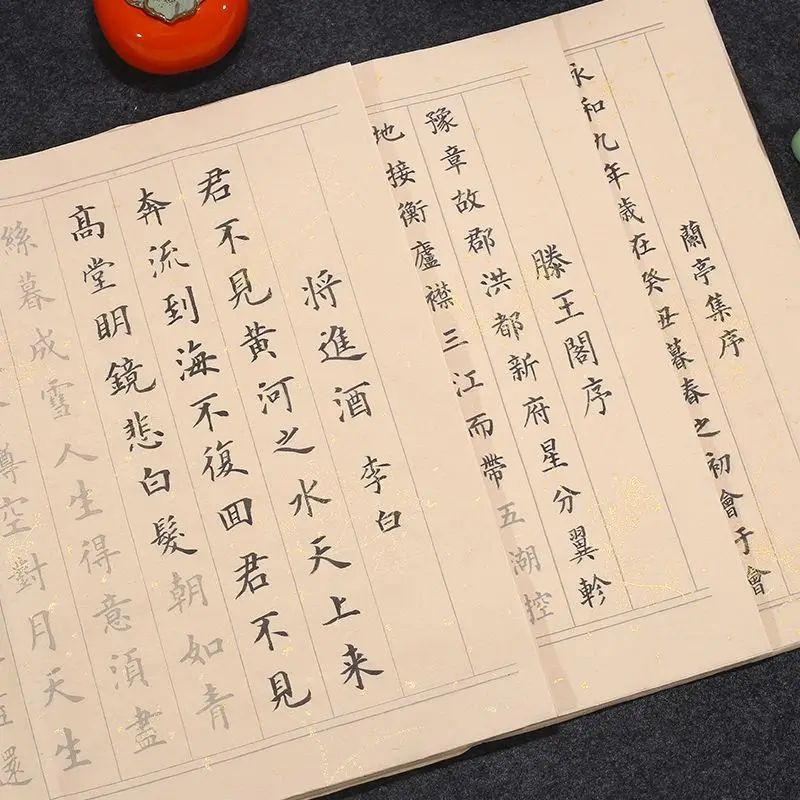 蘭亭集序
永和九年歲在癸丑暮春之初會于會
滕王閣序
豫章故郡洪都新府星分翼軫
地接衡廬襟三江而帶五湖控
將進酒 李白
君不見黄河之水天上来
奔流到海不復囬君不見
高堂眀鏡悲白髮朝如青
絲暮成雪人生得意湏盡
樽空對月天生
還